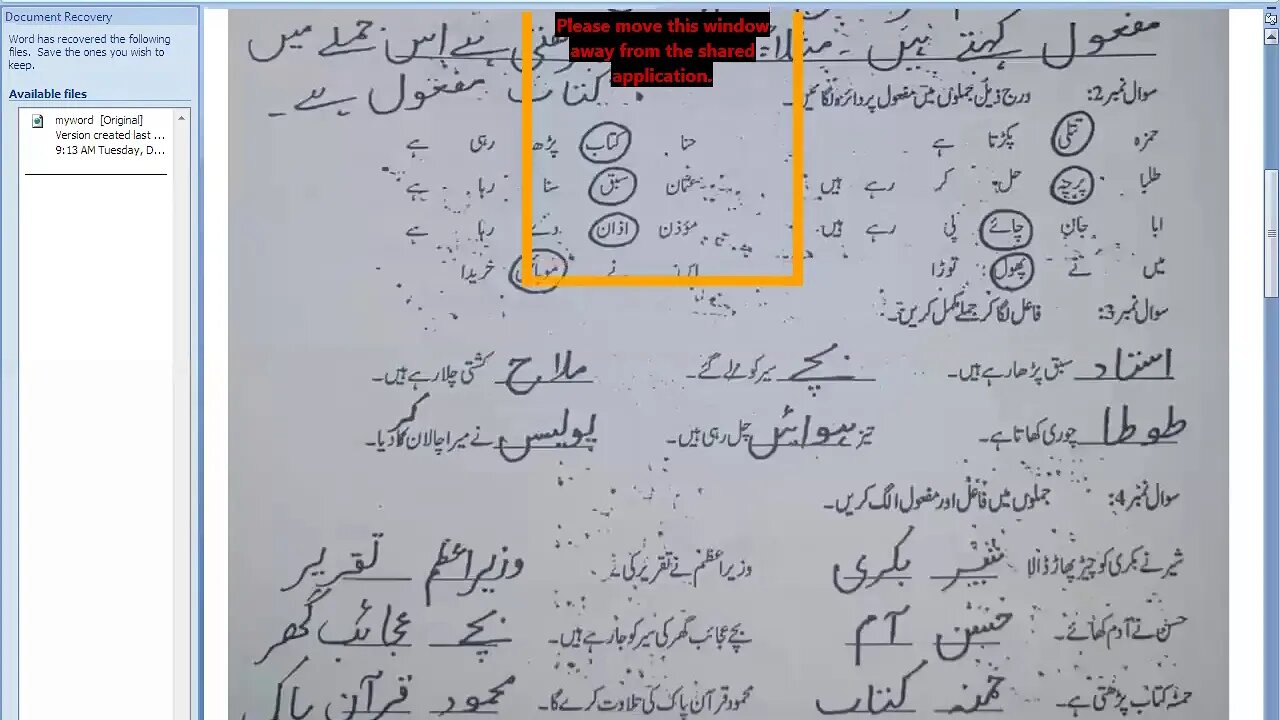 Document Recovery
Word has recovered the following
files. Save the ones you wish to
keep.
Available files
myword [Original]
Version created last ...
9:13 AM Tuesday, D...
Please move this window
away from the shared
application.
مفعول کہتے ہیں۔ مثلاً ہے اس جملے میں
کتاب مفعول ہے۔
سوال نمبر 2: درج ذیل جملوں میں مفعول پر دائرہ لگائیں۔
حمزہ تتلی پکڑتا ہے
حنا کتاب پڑھ رہی ہے
طلبا پرچہ حل کر رہے ہیں
عثمان سبق سنا رہا ہے
ابا جان چائے پی رہے ہیں
مؤذن اذان دے رہا ہے
میں نے پھول توڑا
نے موبائل خریدا
سوال نمبر 3: فاعل لگا کر جملے مکمل کریں۔
استاد سبق پڑھا رہے ہیں۔ بچے سیر کو چلے گئے۔ ملاح کشتی چلا رہے ہیں۔
طوطا چوری کھاتا ہے۔ تیز ہوائیں چل رہی ہیں۔ پولیس نے میرا چالان کر دیا۔
سوال نمبر 4: جملوں میں فاعل اور مفعول الگ کریں۔
شیر نے بکری کو چیر پھاڑ ڈالا شیر بکری وزیراعظم نے تقریر کی۔ وزیراعظم تقریر
حسن نے آم کھائے۔ حسن آم بچے عجائب گھر کی سیر کو جا رہے ہیں۔ بچے عجائب گھر
حمنہ کتاب پڑھتی ہے۔ حمنہ کتاب محمود قرآن پاک کی تلاوت کرے گا۔ محمود قرآن پاک